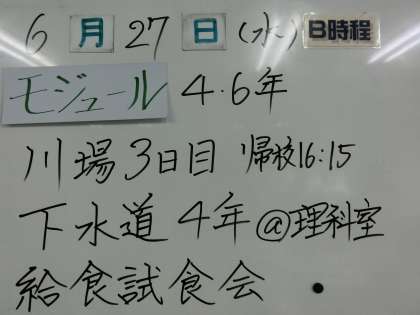 6月27日(水) B時程
モジュール 4・6年
川場3日目 帰校16:15
下水道 4年 @理科室
給食試食会